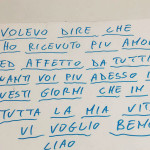 VOLEVO DIRE CHE
HO RICEVUTO PIU AMORE
ED AFFETTO DA TUTTI
QUANTI VOI PIU ADESSO IN
QUESTI GIORNI CHE IN
TUTTA LA MIA VITA
VI VOGLIO BENE
CIAO